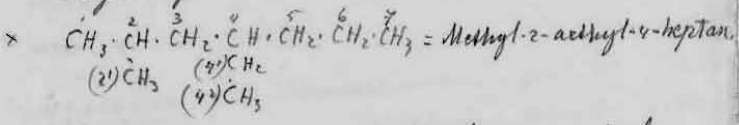 1 2 3 4 5 6 7
× CH₃·CH·CH₂·CH·CH₂·CH₂·CH₃ = Methyl-2-aethyl-4-heptan.
(2¹)CH₃ (4¹)CH₂
(4²)CH₃